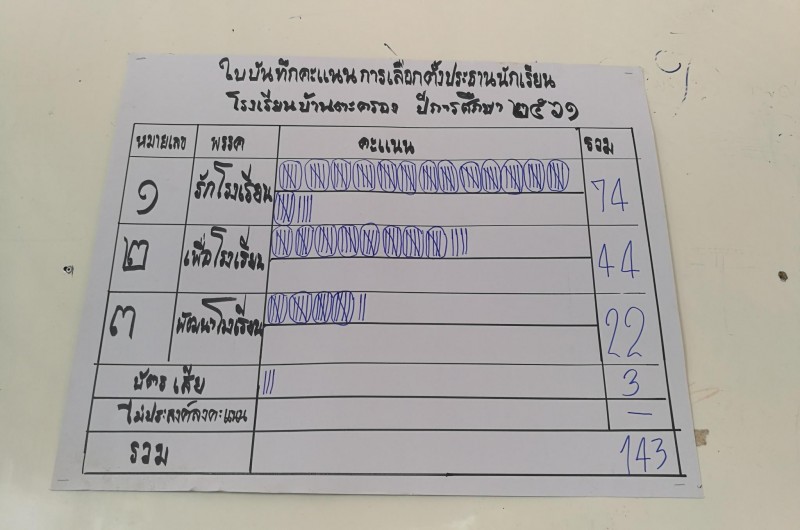 ใบบันทึกคะแนนการเลือกตั้งประธานนักเรียน
โรงเรียนบ้านตะครอง ปีการศึกษา ๒๕๖๑
หมายเลข พรรค คะแนน รวม
๑ รักโรงเรียน 74
๒ เพื่อโรงเรียน 44
๓ พัฒนาโรงเรียน 22
บัตรเสีย 3
ไม่ประสงค์ลงคะแนน —
รวม 143